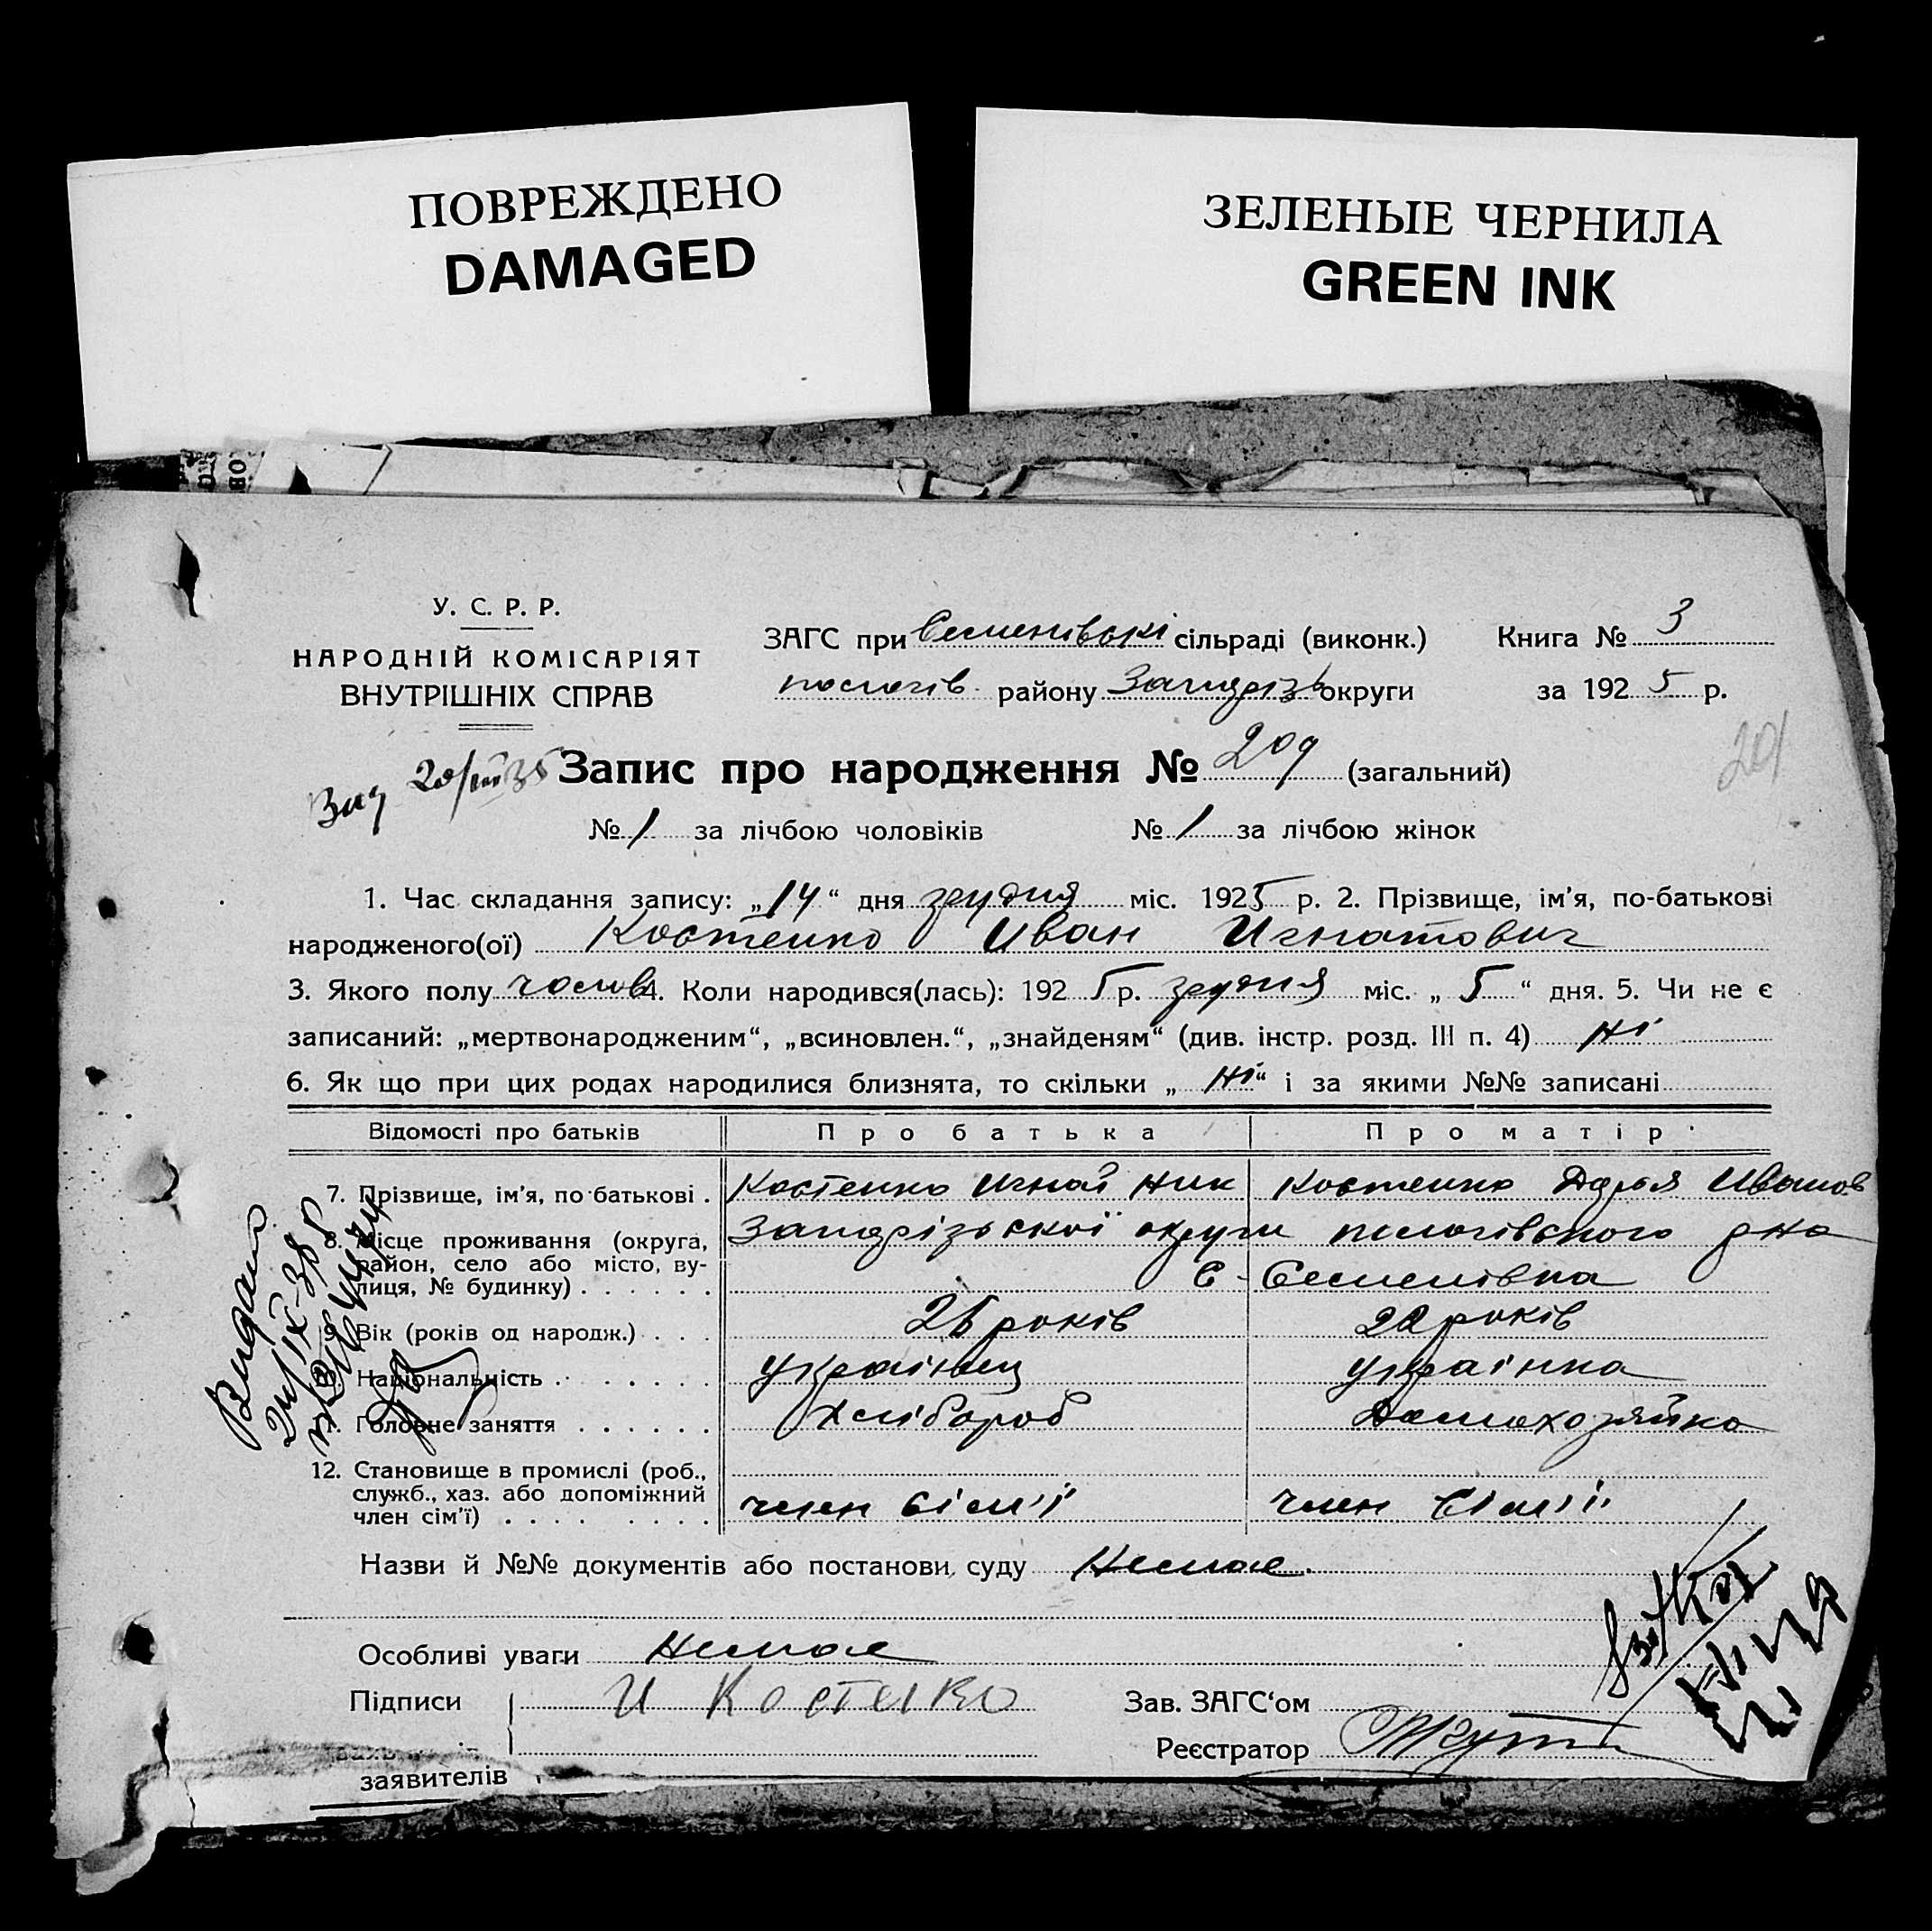 ПОВРЕЖДЕНО
DAMAGED
ЗЕЛЕНЫЕ ЧЕРНИЛА
GREEN INK
У. С. Р. Р.
НАРОДНІЙ КОМІСАРІЯТ
ВНУТРІШНІХ СПРАВ
ЗАГС при Семенівські сільраді (виконк.) Книга № 3
пологів. району Запорізь округи за 1925 р.
20/VIII 35 Запис про народження № 209 (загальний)
201
№ 1 за лічбою чоловіків № 1 за лічбою жінок
1. Час складання запису: „14“ дня грудня міс. 1925 р. 2. Прізвище, ім’я, по-батькові
народженого(ої) Костенко Иван Игнатович
3. Якого полу чолов 4. Коли народився(лась): 1925 р. грудня міс. „5“ дня. 5. Чи не є
записаний: „мертвонародженим“, „всиновлен.“, „знайденям“ (див. інстр. розд. III п. 4) ні
6. Як що при цих родах народилися близнята, то скільки „ні“ і за якими №№ записані
Відомості про батьків Про батька Про матір
7. Прізвище, ім’я, по-батькові . Костенко Игнат Ник Костенко Дарья Иванов
8. Місце проживання (округа, Запорізької округи пологівського р-на
район, село або місто, ву- с. Семенівка
лиця, № будинку) . . . . . .
9. Вік (років од народж.) . . . 25 років 20 років
10. Національність . . . . . . . українец українка
11. Головне заняття . . . . . . Хлібороб Домохозяйка
12. Становище в промислі (роб.,
служб., хаз. або допоміжний член сім’ї член сім’ї
член сім’ї) . . . . . . . . .
Видано
Назви й №№ документів або постанови суду Немає.
Особливі уваги Немає
Підписи И Костенко Зав. ЗАГС‘ом
Реєстратор
заявителів